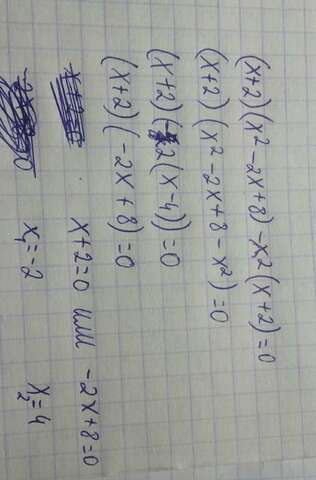 (x+2)(x²-2x+8)-x²(x+2)=0
(x+2)(x²-2x+8-x²)=0
(x+2)(-2(x-4))=0
(x+2)(-2x+8)=0
x+2=0 или -2x+8=0
x₁=-2 x₂=4